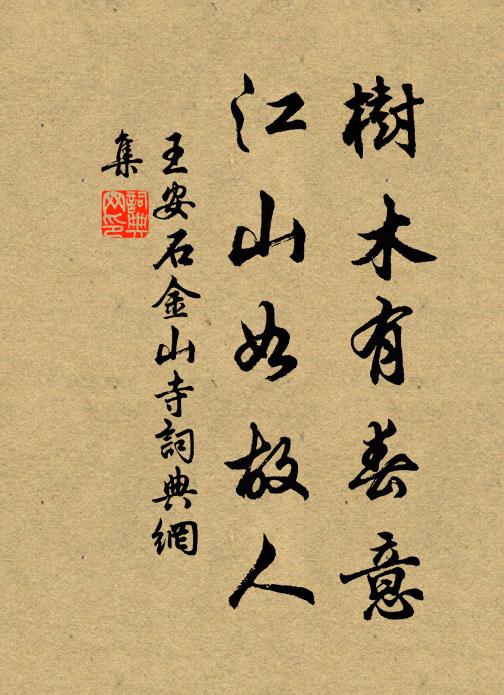 樹木有春意
江山如故人
王安石金山寺詞典網
集
詞典网印